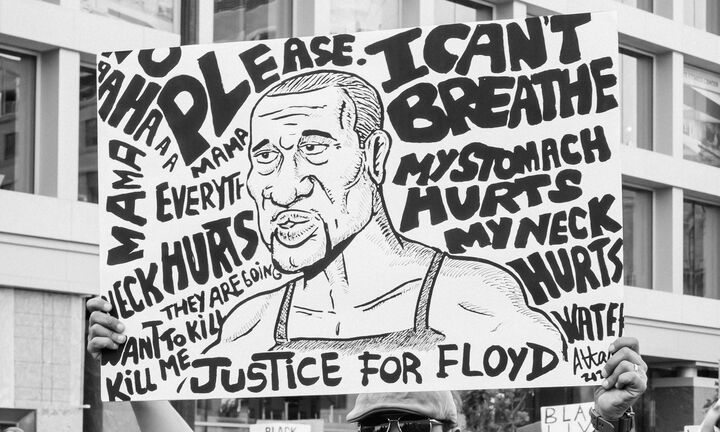 AHA
AA
MAMA
PLEASE.
MAMA
EVERYTH
NECK HURTS
THEY ARE GOING
WANT TO KILL
KILL ME
I CAN'T
BREATHE
MY STOMACH
HURTS
MY NECK
HURTS
WATER
JUSTICE FOR FLOYD
BLACK
BLAC